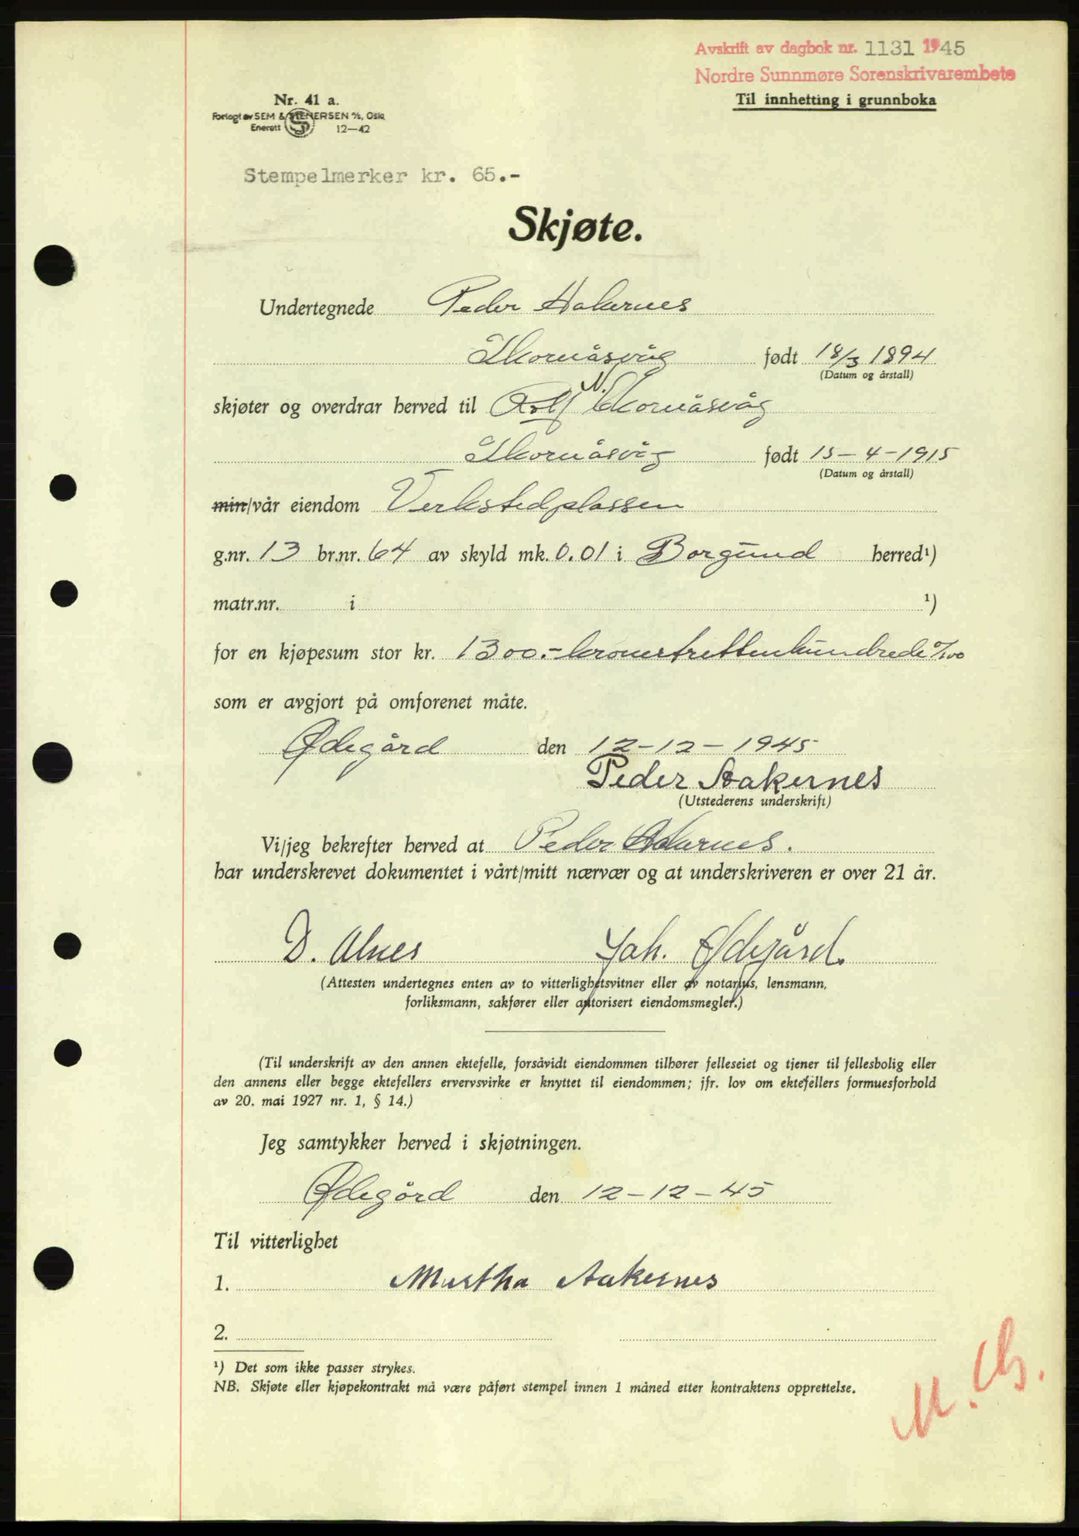 Avskrift av dagbok nr. 1131 1945
Nordre Sunnmøre Sorenskrivarembete
Til innhetting i grunnboka
Nr. 41 a.
Forlagt av SEM & STENERSEN A/S, Oslo
Enerett 12—42
Stempelmerker kr. 65.-
Skjøte.
Undertegnede Peder Aakernes
Skornåsvåg født 18/3 1894
(Datum og årstall)
skjøter og overdrar herved til Rolf N. Skornåsvåg
Skornåsvåg født 15-4-1915
(Datum og årstall)
min/vår eiendom Verkstedplassen
g.nr. 13 br.nr. 64 av skyld mk. 0.01 i Borgund herred¹)
matr.nr. i ¹)
for en kjøpesum stor kr. 1300.- kronertrettenhundrede 0/100
som er avgjort på omforenet måte.
Ødegård den 12-12-1945
Peder Aakernes
(Utstederens underskrift)
Vi/jeg bekrefter herved at Peder Aakernes.
har underskrevet dokumentet i vårt/mitt nærvær og at underskriveren er over 21 år.
D. Alnes Joh. Ødegård.
(Attesten undertegnes enten av to vitterlighetsvitner eller av notarius, lensmann,
forliksmann, sakfører eller autorisert eiendomsmegler.)
(Til underskrift av den annen ektefelle, forsåvidt eiendommen tilhører felleseiet og tjener til fellesbolig eller
den annens eller begge ektefellers ervervsvirke er knyttet til eiendommen; jfr. lov om ektefellers formuesforhold
av 20. mai 1927 nr. 1, § 14.)
Jeg samtykker herved i skjøtningen.
Ødegård den 12-12-45
Til vitterlighet
1. Martha Aakernes
2.
¹) Det som ikke passer strykes.
NB. Skjøte eller kjøpekontrakt må være påført stempel innen 1 måned etter kontraktens opprettelse.